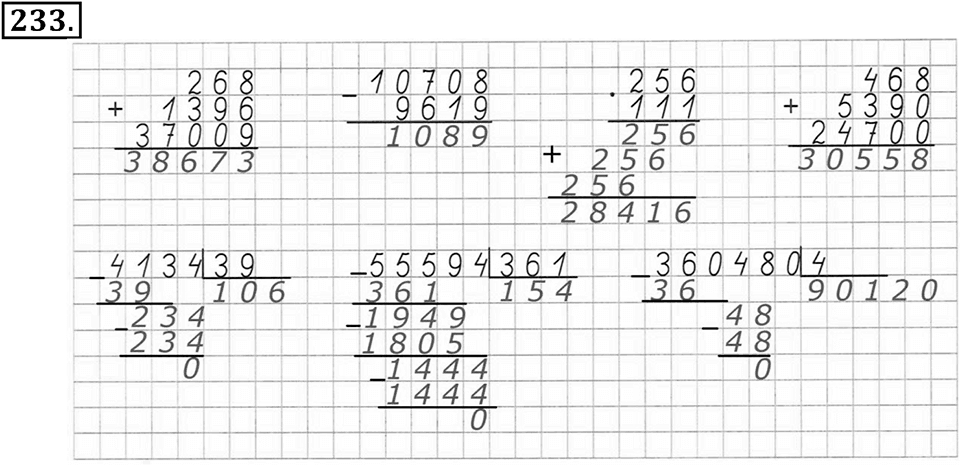 233.
268
+ 1396
37009
38673
− 10708
9619
1089
· 256
111
256
+ 256
256
28416
468
+ 5390
24700
30558
− 4134 39
39 106
− 234
234
0
− 55594 361
361 154
− 1949
1805
− 1444
1444
0
− 360480 4
36 90120
− 48
48
0